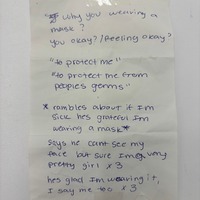 "why you wearing a
mask?
you okay? / feeling okay?
"to protect me"
"to protect me from
peoples germs"
* rambles about it Im
sick hes grateful Im
wearing a mask*
says he cant see my
face but sure Im a very
pretty girl x3
hes glad Im wearing it,
I say me too x3